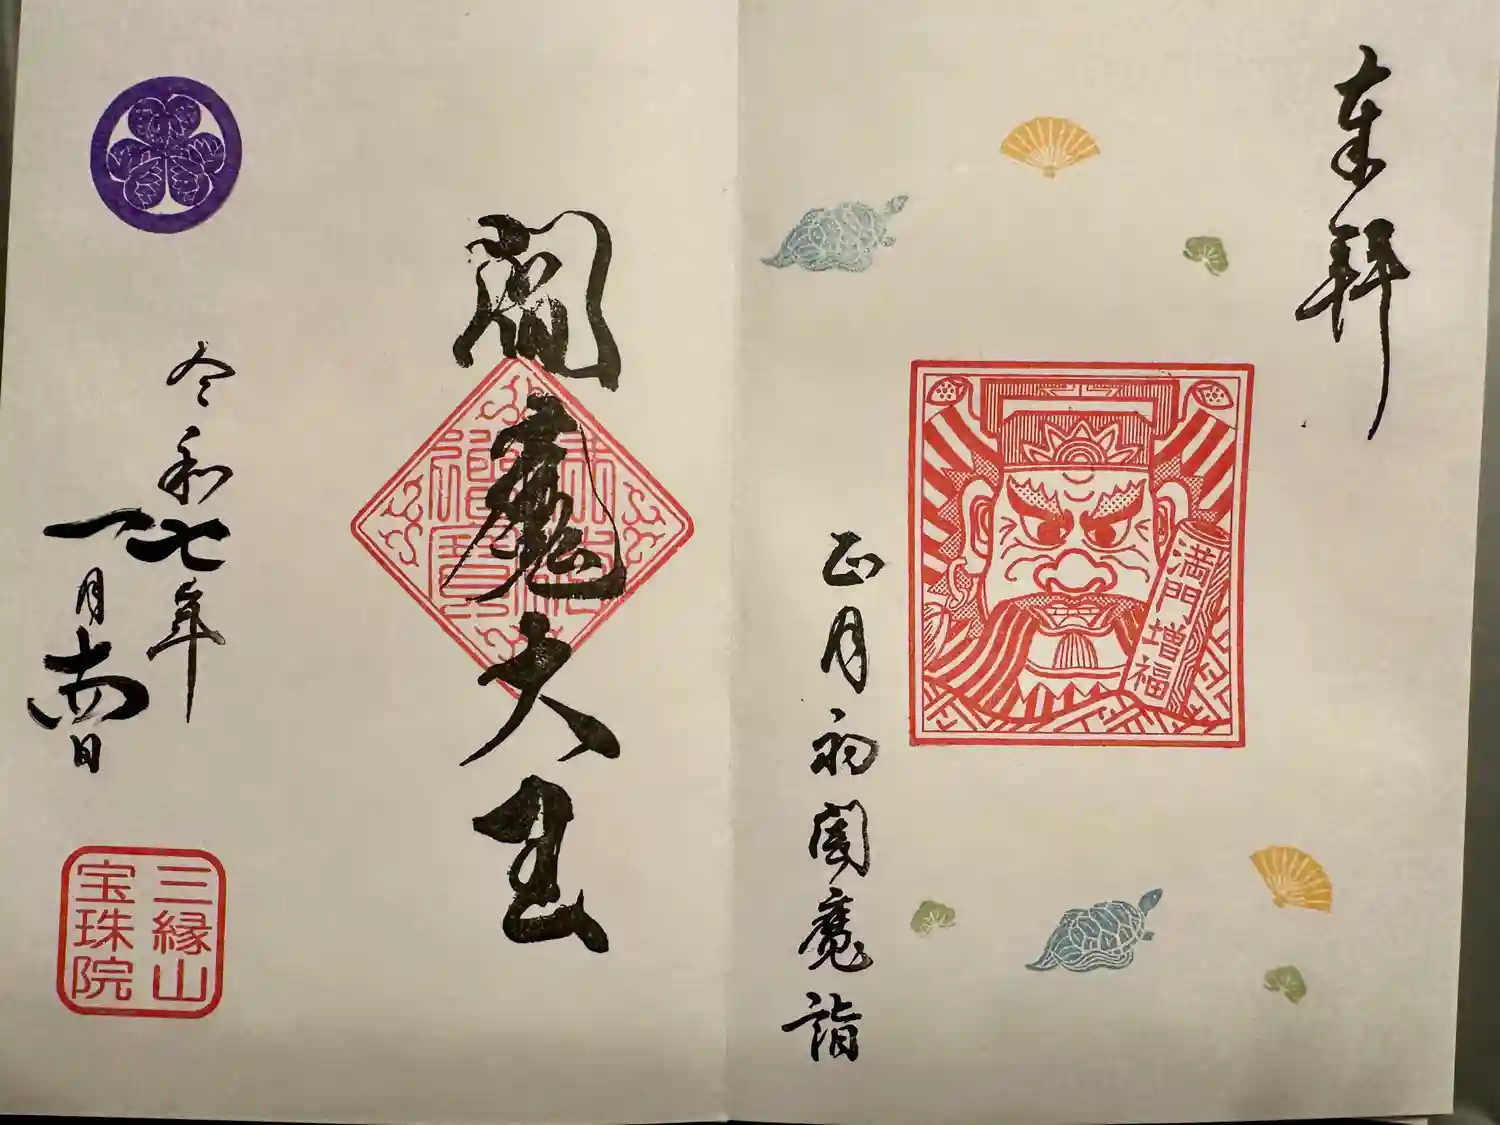 奉拝
満門増福
正月初閻魔詣
閻魔大王
令和七年
一月十四日
三縁山
宝珠院